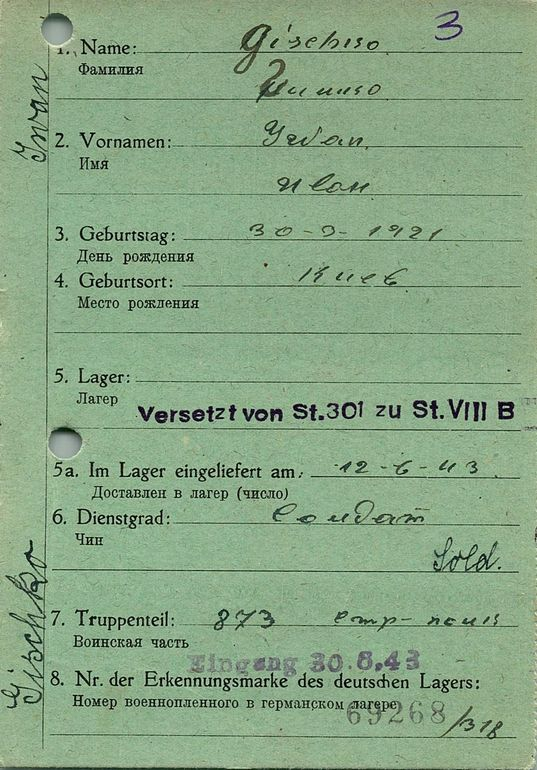 3
1. Name: Gischko
Фамилия
2. Vornamen: Iwan
Имя
Иван
3. Geburtstag: 30-3-1921
День рождения
4. Geburtsort: Киев
Место рождения
5. Lager:
Лагерь
Versetzt von St.301 zu St. VIII B
5a. Im Lager eingeliefert am: 12-6-43
Доставлен в лагер (число)
6. Dienstgrad: Солдат
Чин
Sold.
7. Truppenteil: 873 стр-полк
Воинская часть
Eingang 30.6.43
8. Nr. der Erkennungsmarke des deutschen Lagers:
Номер военнопленного в германском лагере
69268/318
Gischko Iwan